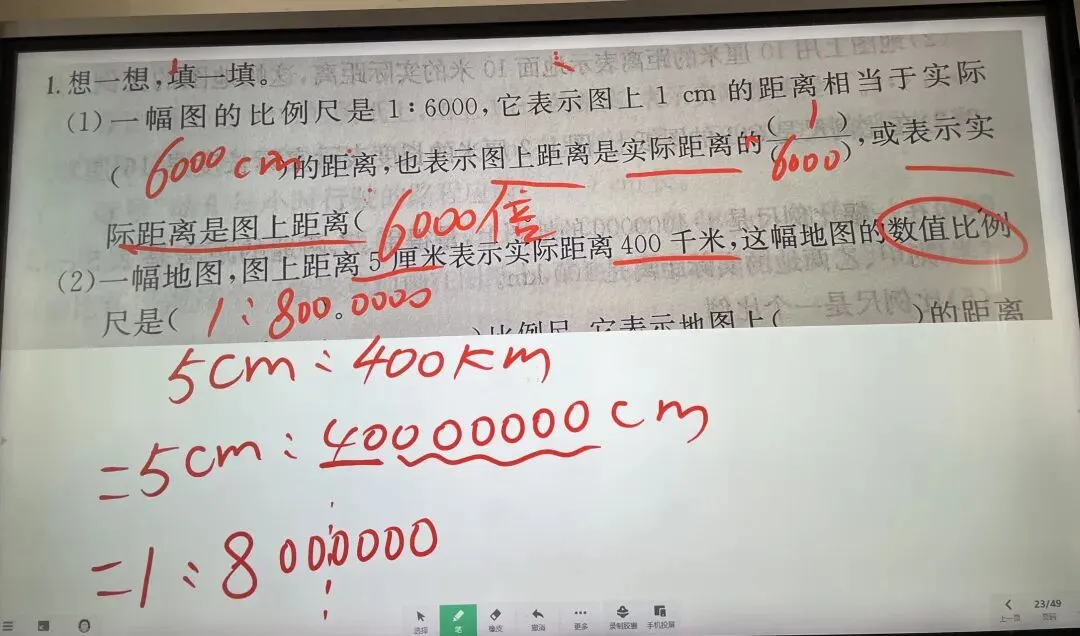 1. 想一想,填一填。
(1) 一幅图的比例尺是1∶6000,它表示图上1 cm的距离相当于实际
( 6000cm )的距离,也表示图上距离是实际距离的(1)/(6000),或表示实
际距离是图上距离( 6000倍
(2) 一幅地图,图上距离5厘米表示实际距离400千米,这幅地图的数值比例
尺是( 1:800.0000
)比例尺,它表示地图上( )的距离
5cm:400Km
=5cm:40000000cm
=1:8000000
选择 笔 橡皮 撤消 更多 录制胶囊 手机投屏
上一页 23/49 页码